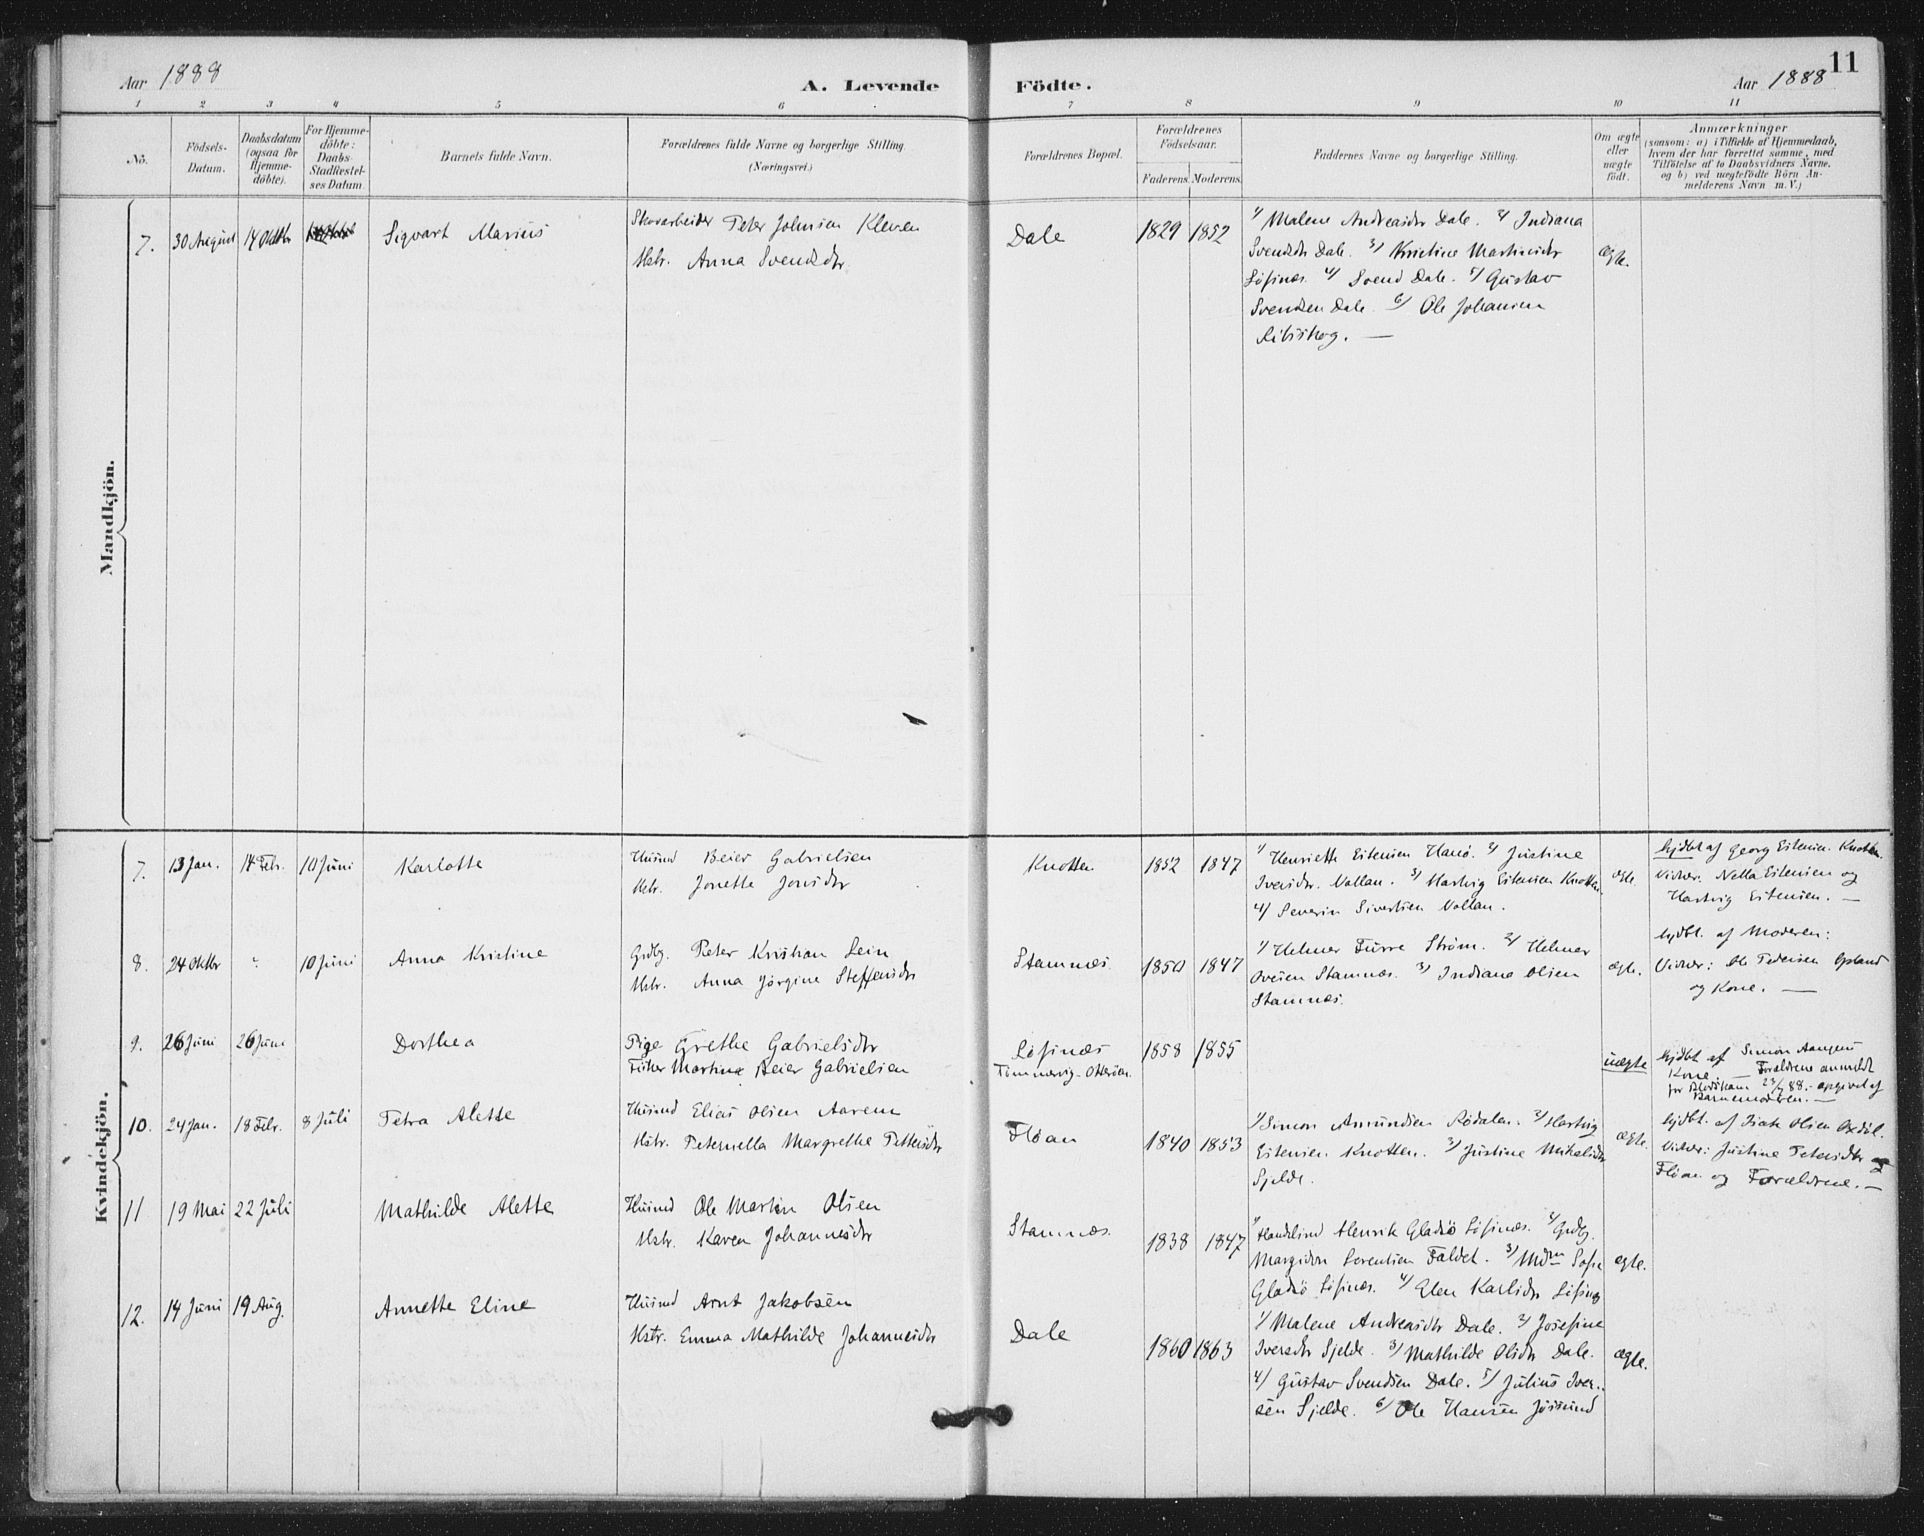 Aar 1888
A. Levende Födte.
Aar 1888
11
1 2 3 4 5 6 7 8 9 10 11
No.
Födsels-Datum.
Daabsdatum (ogsaa for Hjemme-döbte).
For Hjemme-döbte: Daabs-Stadfestel-ses Datum
Barnets fulde Navn.
Forældrenes fulde Navne og borgerlige Stilling.
(Næringsvei.)
Forældrenes Bopæl.
Forældrenes Födselsaar.
Faderens. Moderens.
Faddernes Navne og borgerlige Stilling.
Om ægte eller uægte födt.
Anmærkninger
(saasom: a) i Tilfælde af Hjemmedaab,
hvem der har forrettet samme, med
Tilföielse af to Daabsvidners Navne,
og b) ved uægtefödte Börn An-
melderens Navn m. V.)
Mandkjön.
7. 30 August 14 Oktbr Sigvart Marius
Skovarbeider Peter Johnsen Kleven
Hstr. Anna Svendsdtr.
Dale 1829 1852
1/ Malene Andreasdtr Dale. 2/ Indiana
Svendsdtr Dale. 3/ Kristine Martinsdtr
Löfsnæs. 4/ Svend Dale. 5/ Gustav
Svendsen Dale. 6/ Ole Johansen
Ribsskog. —
ægte.
Kvindekjön.
7. 13 Jan. 14 Febr. 10 Juni Karlotte
Husmd Beier Gabrielsen
Hstr. Jonette Jonsdtr
Knotten 1852 1847
1/ Henriette Eilensen Hanö. 2/ Justine
Iversdtr. Vollan. 3/ Hartvig Eilensen Knotten.
4/ Severin Sivertsen Vollan.
ægte.
hjdbt af Georg Eilensen Knotten.
Vidner. Nella Eilensen og
Hartvig Eilensen. —
8. 24 Oktbr 10 Juni Anna Kristine
Grdbg. Peter Kristian Lein
Hstr. Anna Jörgine Steffensdtr
Stamnæs. 1850 1847
1/ Helmer Furre Ström. 2/ Helmer
Ovesen Stamnæs. 3/ Indiana Olsen
Stamnæs.
ægte.
hjdbt. af Moderen:
Vidner: Ole Pedersen Opland
og Kone. —
9. 26 Juni 26 Juni Dorthea
Pige Grethe Gabrielsdtr
Fisker Martinus Beier Gabrielsen
Löfsnæs
Tömmervig-Otteröen.
1858 1855
uægte
hjdbt af Simon Aangens
Kone. — Forældrene anmeldt
for Blodskam 23/7 88. - opgivet af
Barnemoderen. —
10. 24 Jan. 18 Febr. 8 Juli Petra Alette
Husmd Elias Olsen Aarem
Hstr. Peternella Margrethe Pettersdtr
Flöan 1840 1853
1/ Simon Amundsen Rödalen. 2/ Hartvig
Eilensen Knotten. 3/ Justine Mikalsdtr
Sjelde.
ægte.
hjdbt. af Isak Olsen Oxdöl.
Vidner: Justine Petersdtr
Flöan og Forældrene. —
11 19 Mai 22 Juli Mathilde Alette
Husmd Ole Martin Olsen
Hstr. Karen Johannesdtr
Stamnæs. 1838 1847
1/ Handelsmd Henrik Gladsö Löfsnæs. 2/ Grdbg.
Margido Lorentsen Faldet. 3/ Mdm Sofie
Gladsö Löfsnæs. 4/ Elen Karlsdtr Löfsnæs
ægte.
12. 14 Juni 19 Aug. Annette Eline
Husmd Arnt Jakobsen
Hstr. Emma Mathilde Johannesdtr
Dale 1860 1863
1/ Malene Andreasdtr Dale. 2/ Josefine
Iversdtr Sjelde. 3/ Mathilde Olsdtr Dale.
4/ Gustav Svendsen Dale. 5/ Julius Iver-
sen Sjelde. 6/ Ole Hansen Jössund
ægte.